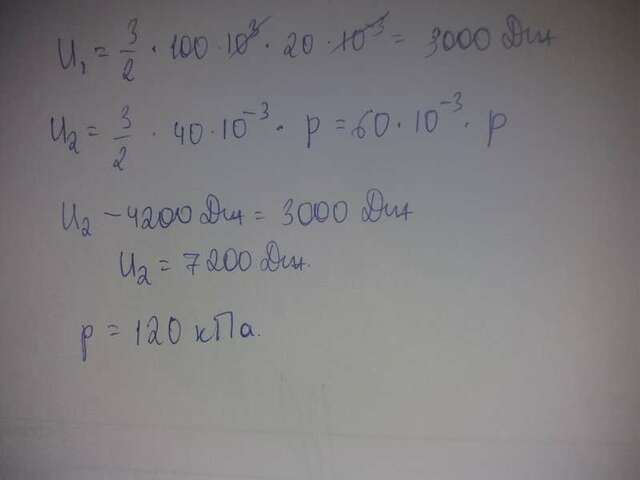 U₁ = 3/2 · 100 · 10³ · 20 · 10⁻³ = 3000 Дж
U₂ = 3/2 · 40 · 10⁻³ · p = 60 · 10⁻³ · p
U₂ − 4200 Дж = 3000 Дж
U₂ = 7200 Дж.
p = 120 кПа.